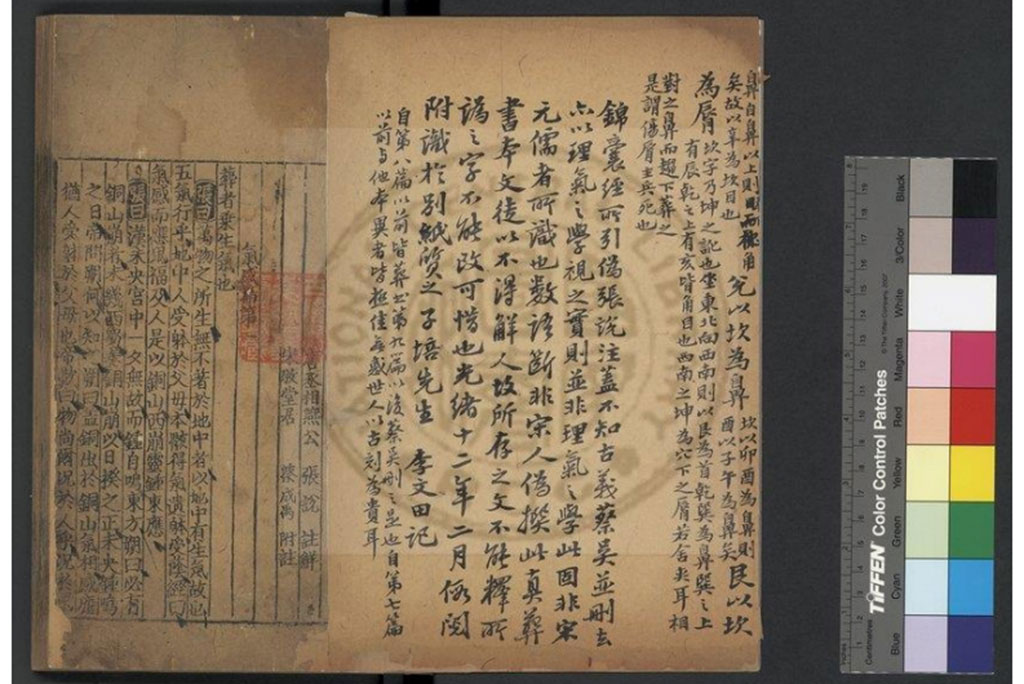 鼻自鼻以上則目而穐角
矣故以辛為坎目也
兌以坎為鼻
坎以卯酉為鼻則
酉以子午為鼻矣
艮以坎
為脣
坎字乃坤之訛也坐東北向西南則以艮為首乾巽為鼻巽之上
有辰乾之上有亥皆角目也西南之坤為穴下之脣若舍夫耳相
對之鼻而趨下葬之
是謂傷脣主兵死也
錦囊經所引偽張說注蓋不知古義蔡吳並刪去
亦以理氣之學視之實則並非理氣之學此固非宋
元儒者所識也數語斷非宋人偽撰此真葬
書本文徒以不得解人故所存之文不能釋所
譌之字不能改可惜也光緒十二年二月
附識於別紙質之子培先生 李文田記
自第八篇以前皆葬書第九篇以後蔡吳刪之是也自第七篇
以前與他本異者皆極佳無惑世人以古刻為貴耳
張說 註
陳成禹 附註
氣感篇第一
葬者乗生氣也
張曰萬物之所生無不著於地中者以地中有生氣故也
五氣行乎地中人受躰於父母本骸得氣遺躰受蔭經曰
氣感而應鬼福及人是以銅山西崩靈鍾東應
張曰漢未央宮中一夕無故而鍾自鳴東方朔曰必有
銅山崩者未幾西蜀銅山崩以日揆之正未央鍾鳴
之日帝問朔何以知朔曰盖銅出於銅山氣相感應
猶人受躰於父母也帝歎曰物尚爾况於人乎